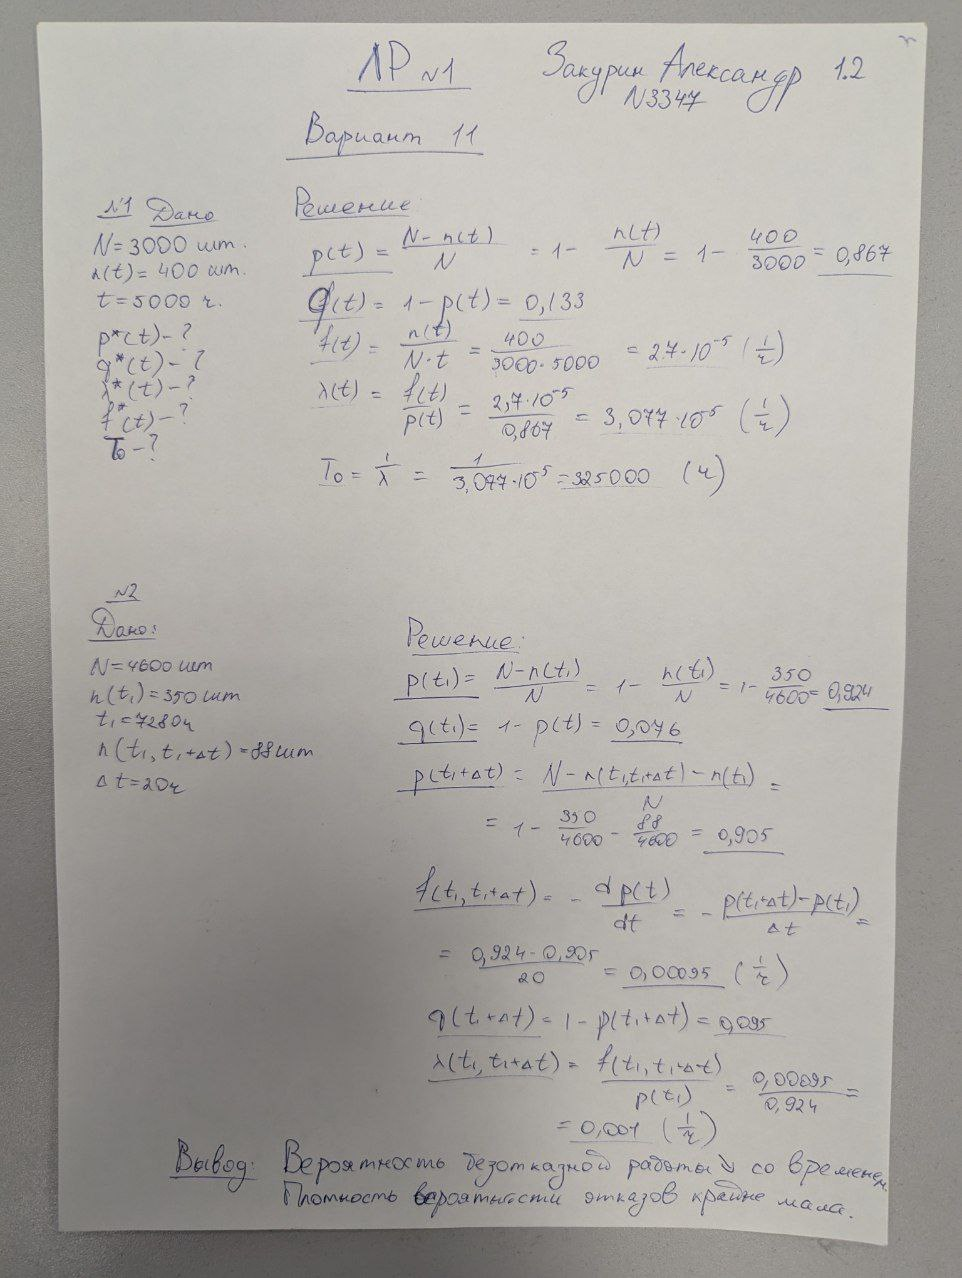 ЛР №1 Закурин Александр 1.2
N3347
Вариант 11
№1 Дано
N=3000 шт.
n(t)=400 шт.
t=5000 ч.
p*(t)-?
q*(t)-?
λ*(t)-?
f*(t)-?
T₀-?
Решение
p(t) = (N-n(t))/N = 1 - n(t)/N = 1 - 400/3000 = 0,867
q(t) = 1-p(t) = 0,133
f(t) = n(t)/(N·t) = 400/(3000·5000) = 2.7·10⁻⁵ (1/ч)
λ(t) = f(t)/p(t) = 2,7·10⁻⁵/0,867 = 3,077·10⁻⁵ (1/ч)
T₀ = 1/λ = 1/(3,077·10⁻⁵) = 325000 (ч)
№2
Дано:
N=4600 шт
n(t₁)=350 шт
t₁=7280ч
n(t₁,t₁+Δt)=88шт
Δt=20ч
Решение:
p(t₁) = (N-n(t₁))/N = 1 - n(t₁)/N = 1 - 350/4600 = 0,924
q(t₁) = 1-p(t) = 0,076
p(t₁+Δt) = (N-n(t₁,t₁+Δt)-n(t₁))/N =
= 1 - 350/4600 - 88/4600 = 0,905
f(t₁,t₁+Δt) = - dp(t)/dt = - (p(t₁+Δt)-p(t₁))/Δt =
= (0,924-0,905)/20 = 0,00095 (1/ч)
q(t₁+Δt) = 1-p(t₁+Δt) = 0,095
λ(t₁,t₁+Δt) = f(t₁,t₁+Δt)/p(t₁) = 0,00095/0,924 =
= 0,001 (1/ч)
Вывод: Вероятность безотказной работы ↘ со временем.
Плотность вероятности отказов крайне мала.